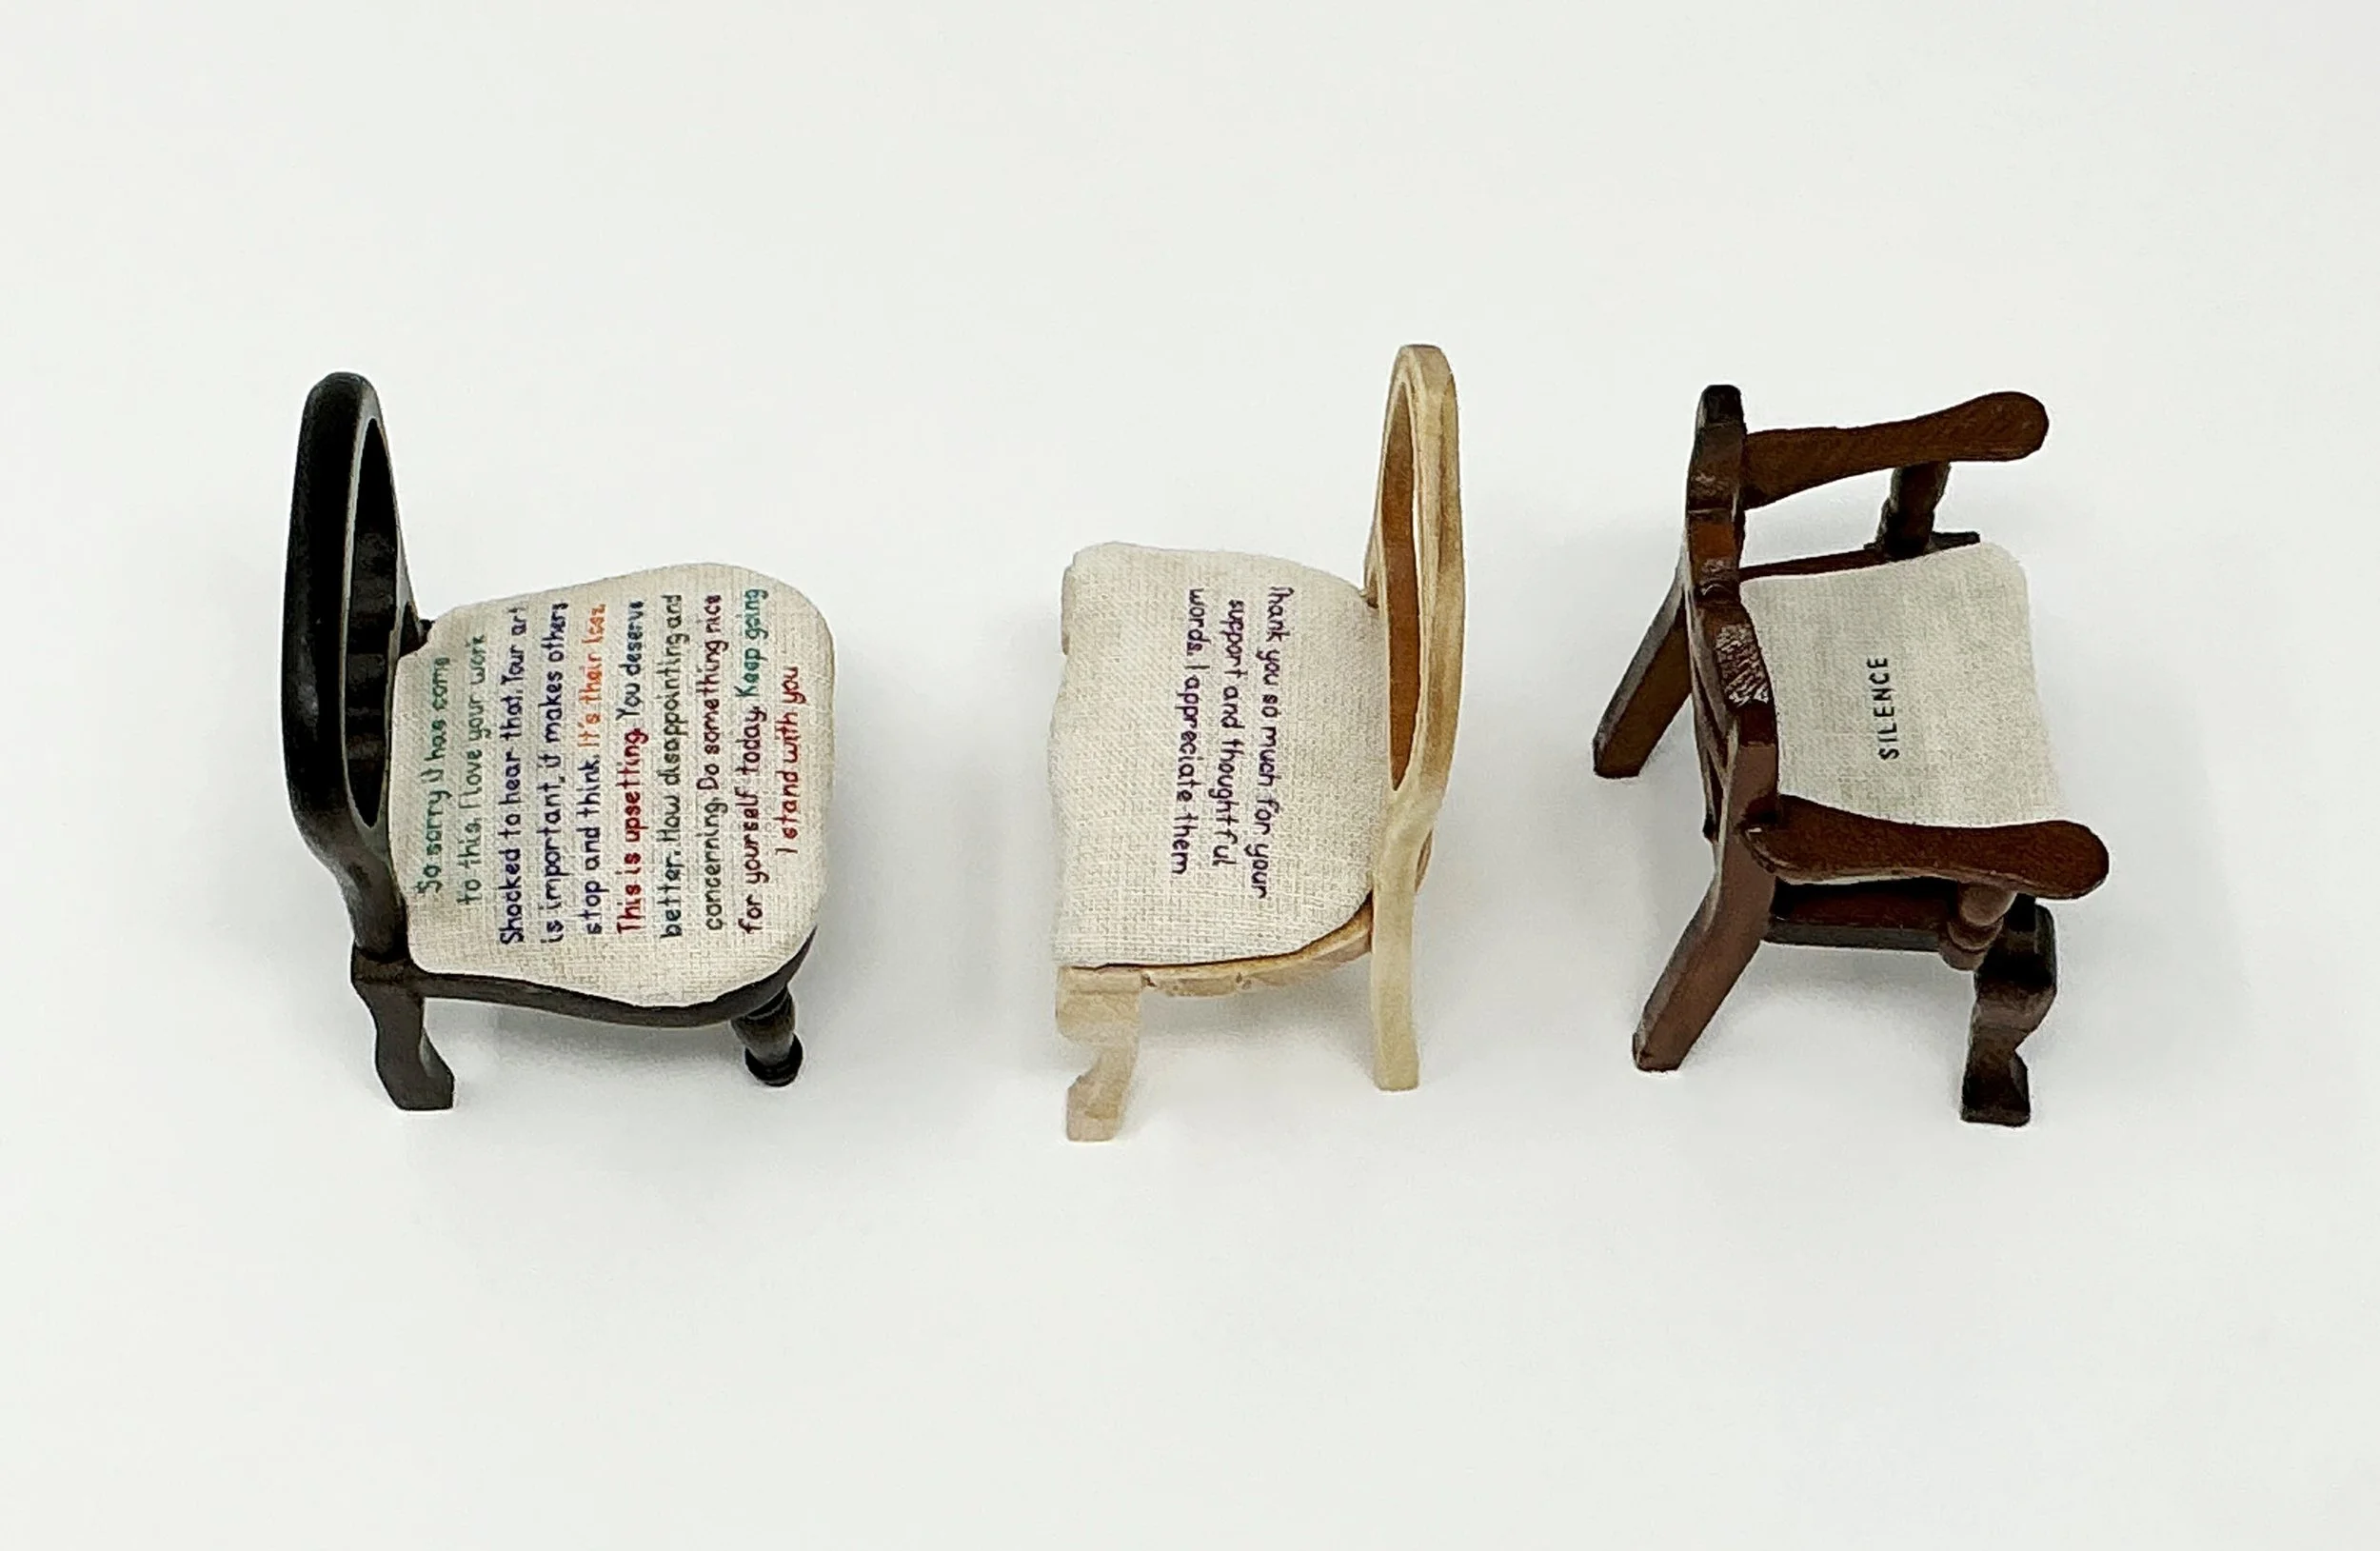 So sorry it has come
to this. I love your work
Shocked to hear that. Your art
is important, it makes others
stop and think. It's their loss.
This is upsetting. You deserve
better. How disappointing and
concerning. Do something nice
for yourself today. Keep going
I stand with you
Thank you so much for your
support and thoughtful
words. I appreciate them
SILENCE